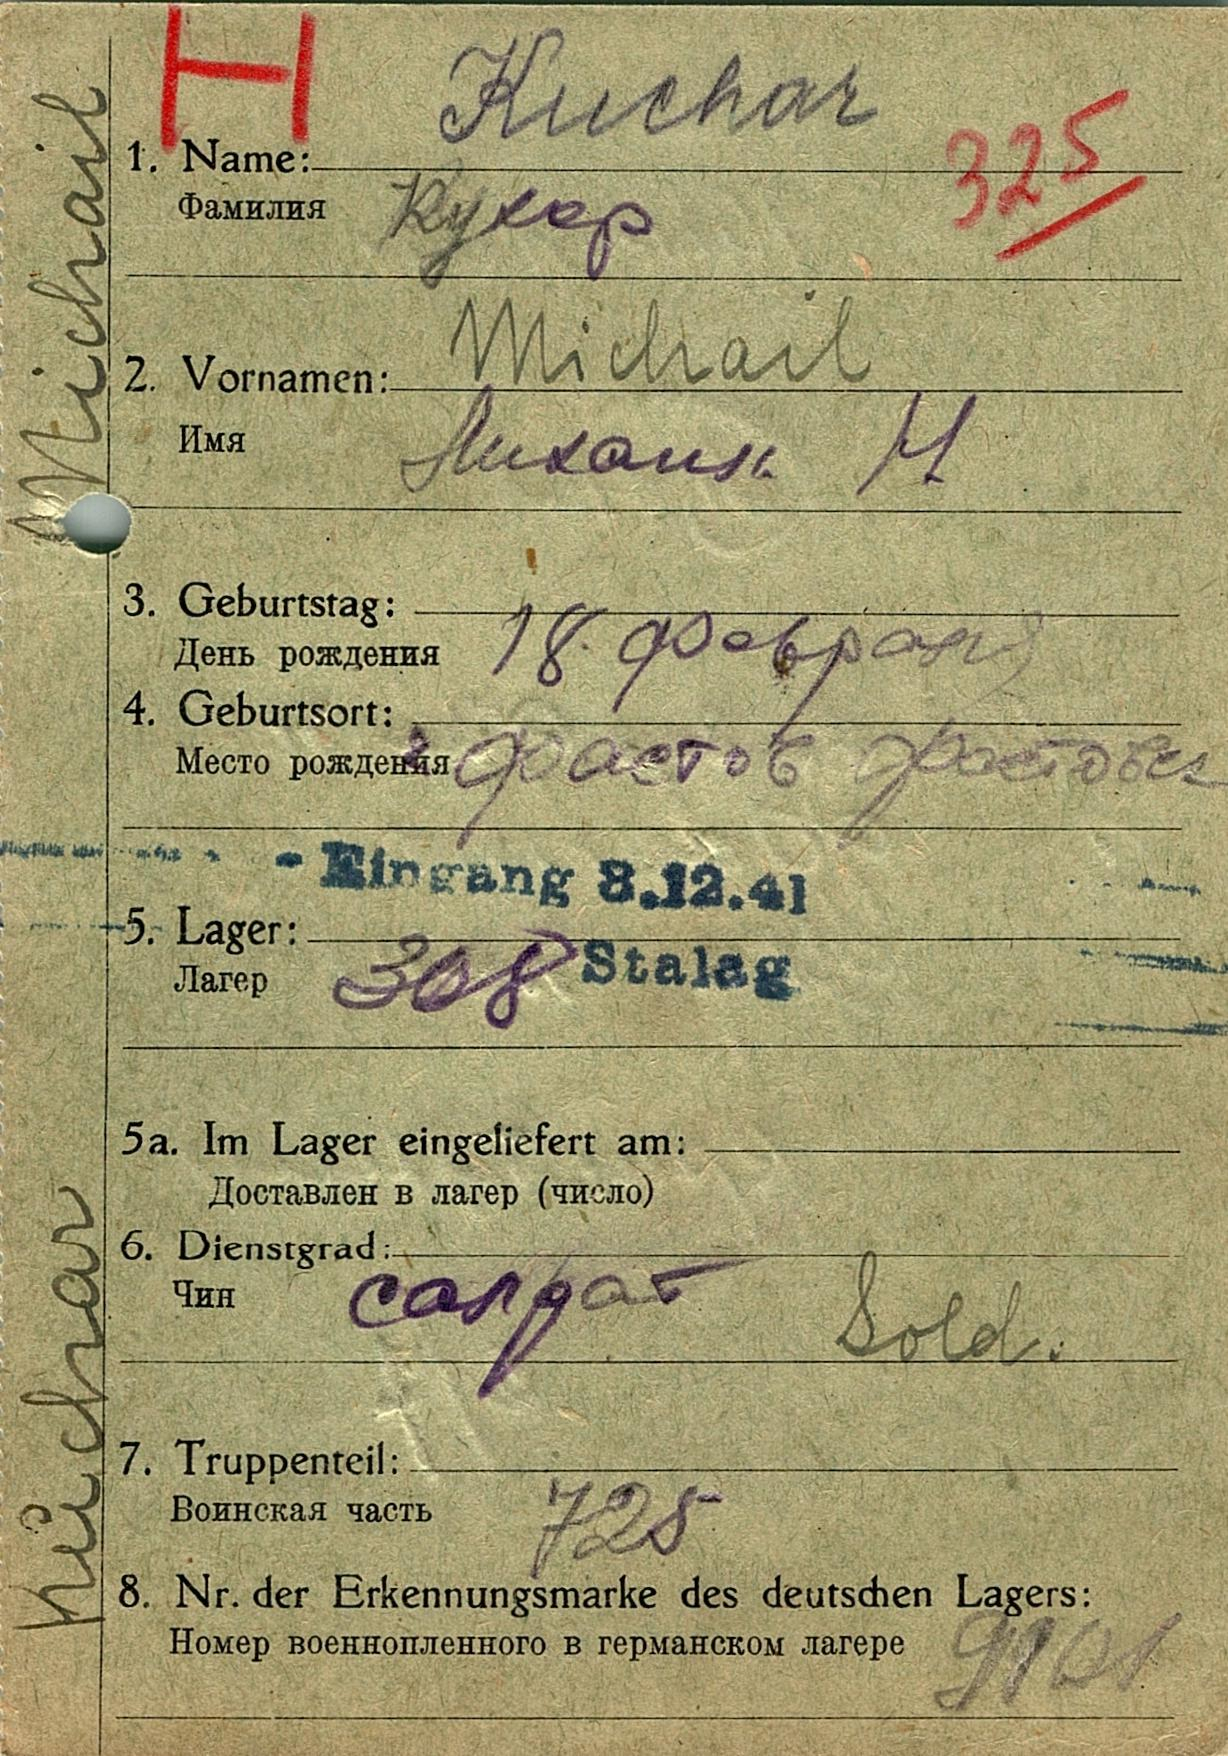 H
Kuchar
1. Name:
325
Фамилия
Кухар
Michail
2. Vornamen:
Имя
Михаил И
3. Geburtstag:
18. Февраля
День рождения
4. Geburtsort:
Место рождения
г Фастов Фастовск
- Eingang 8.12.41
5. Lager:
308 Stalag
Лагер
5a. Im Lager eingeliefert am:
Доставлен в лагер (число)
6. Dienstgrad:
Чин
салдат
Sold.
7. Truppenteil:
Воинская часть
725
8. Nr. der Erkennungsmarke des deutschen Lagers:
Номер военнопленного в германском лагере
Kuchar Michail